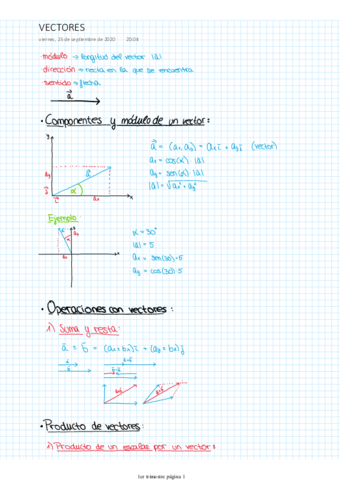 VECTORES
viernes, 25 de septiembre de 2020 20:04
módulo → longitud del vector |a|
dirección → recta en la que se encuentra
sentido → flecha
a
• Componentes y módulo de un vector:
y
a = (ax, ay) = ax i + ay j (vector)
ax = cos(α) · |a|
ay = sen(α) · |a|
|a| = √ax² + ay²
ay
a
α
ax
x
Ejemplo
α = 30°
|a| = 5
ax = sen(30) · 5
ay = cos(30) · 5
• Operaciones con vectores:
1) Suma y resta:
a ± b = (ax ± bx) i + (ay ± by) j
• Producto de vectores:
1) Producto de un escalar por un vector:
1er trimestre página 1